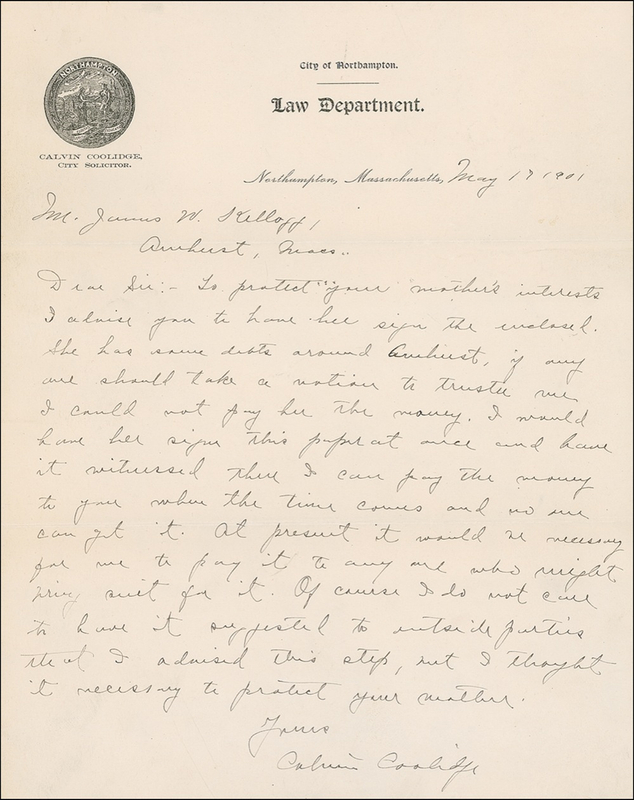 NORTHAMPTON
CALVIN COOLIDGE,
CITY SOLICITOR.
City of Northampton.
Law Department.
Northampton, Massachusetts, May 17 1901
Mr. James W. Kellogg,
Amherst, Mass..
Dear Sir:- To protect your mother's interests
I advise you to have her sign the enclosed.
She has some debts around Amherst, if any
one should take a notion to trustee me
I could not pay her the money. I would
have her sign this paper at once and have
it witnessed then I can pay the money
to you when the time comes and no one
can get it. At present it would be necessary
for me to pay it to any one who might
bring suit for it. Of course I do not care
to have it suggested to outside parties
that I advised this step, but I thought
it necessary to protect your mother.
Yours
Calvin Coolidge